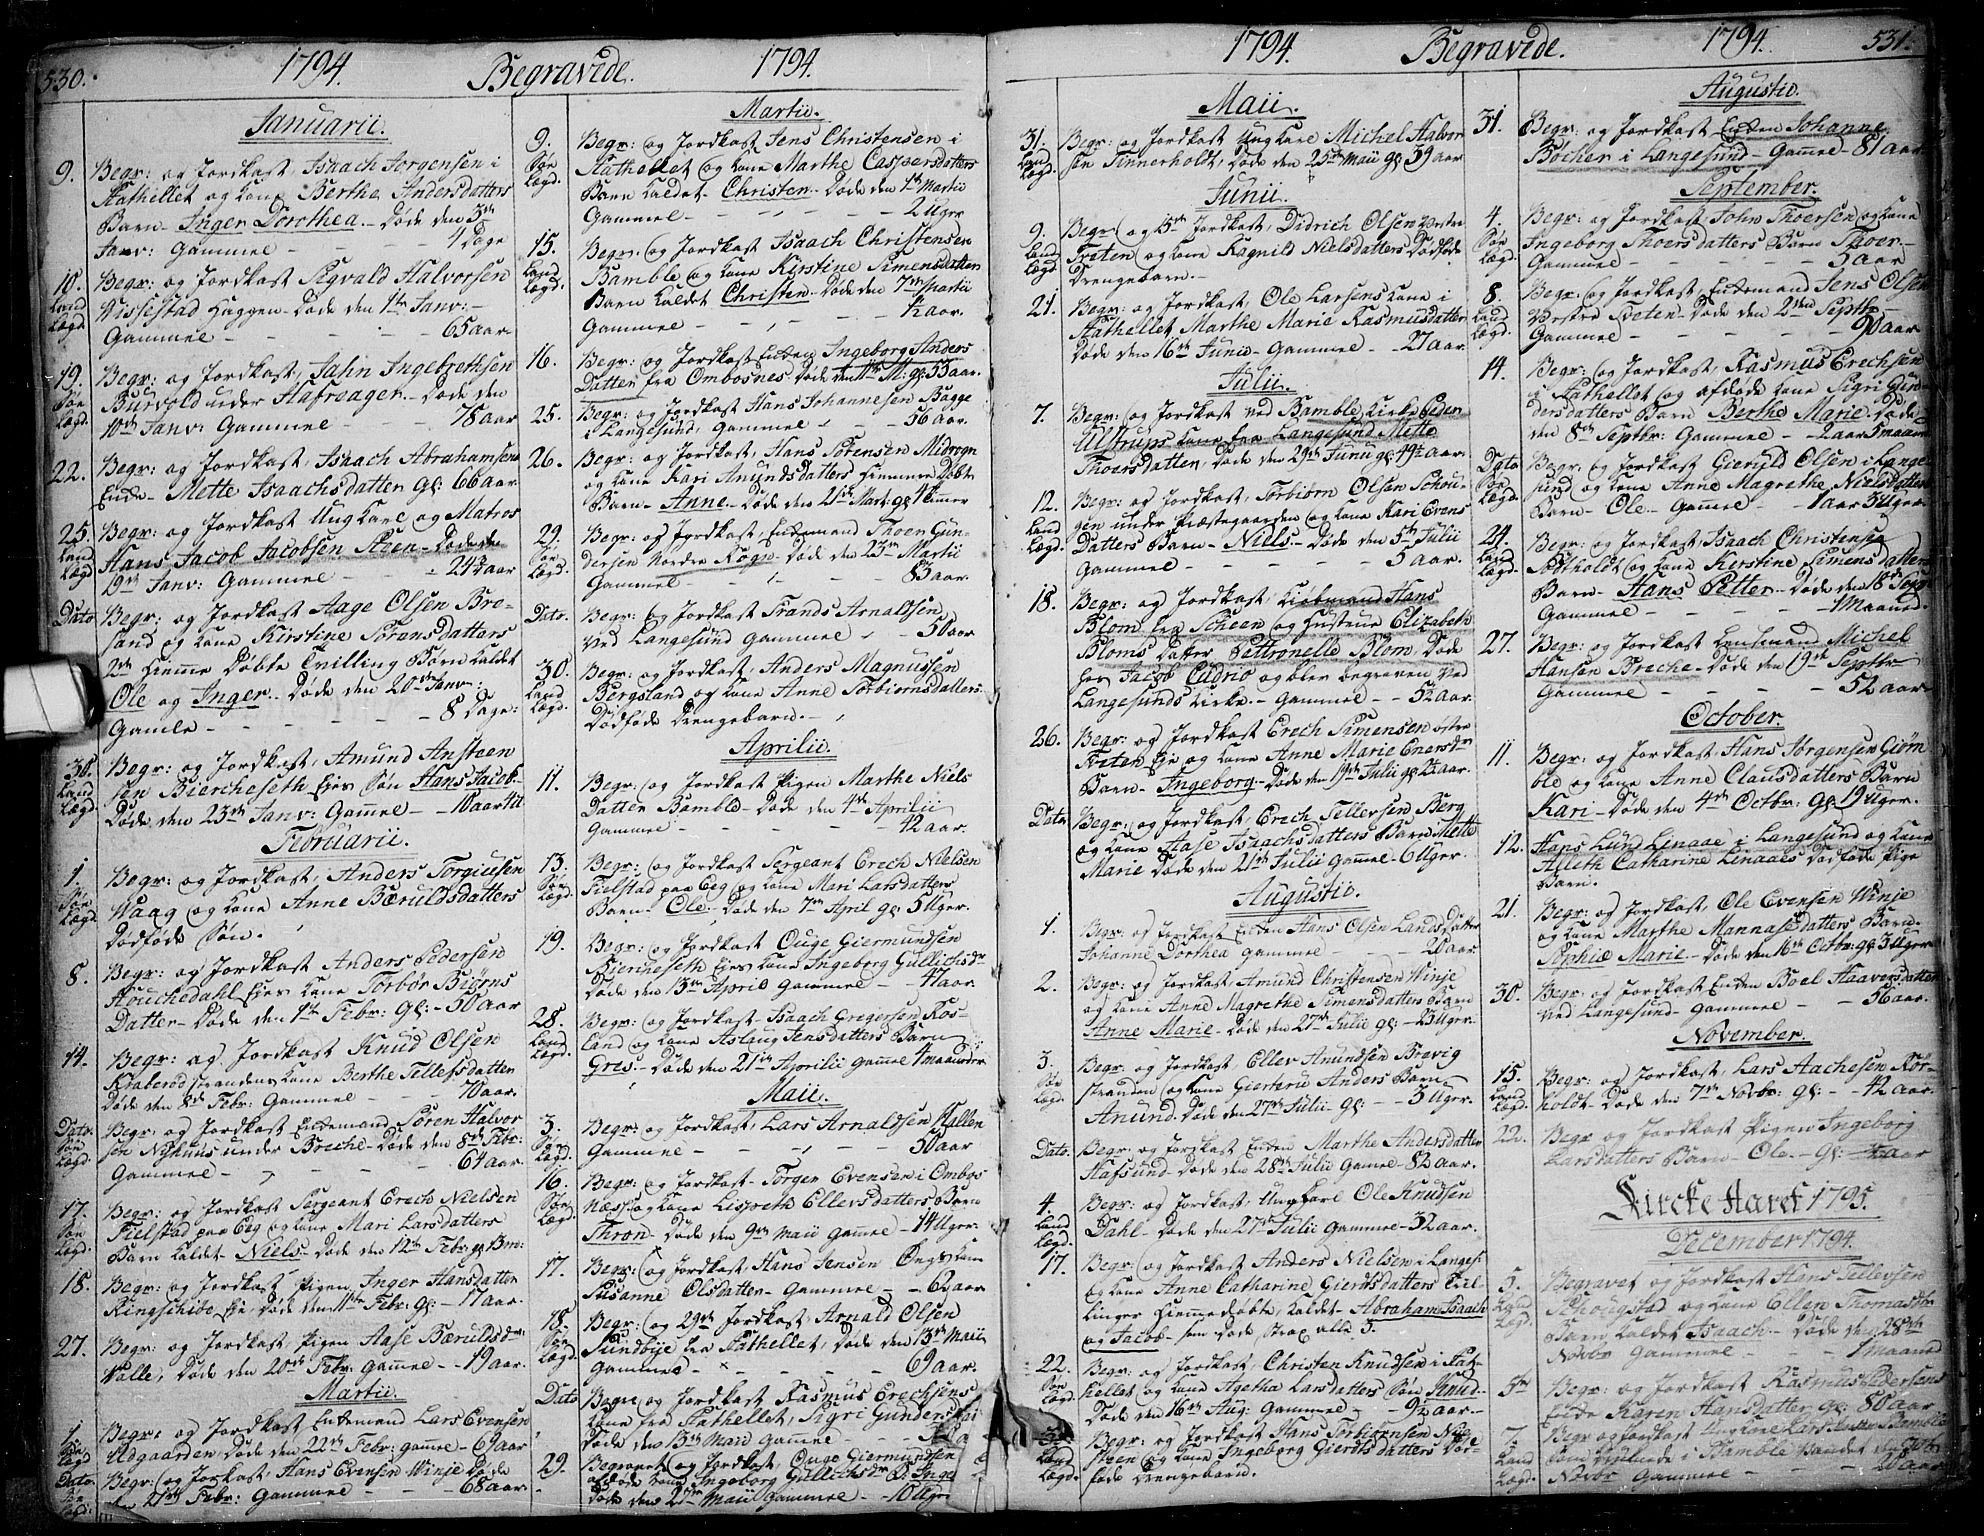 530.
1794.
Begravede.
1794.
Januarii.
9. Begr: og Jordkast, Isaach Jörgensen i
Stathellet og kone Berthe Andersdatters
Barn Inger Dorothea. Döde den 3de
Janv: Gammel - 4 Dage
10. Begr: og Jordkast, Sigvald Halvorsen
Land Vissestad Huggen. Döde den 1ste Janv:
Lægd. Gammel - 65 aar.
19. Begr: og Jordkast, Jahn Ingebrethsen
Söe Burvold under Hafreager. Döde den
Lægd. 10de Janv: Gammel - 78 aar
22. Begr: og Jordkast, Isaach Abrahamsens
Enke Mette Isaachsdatter gl: 66 aar.
25. Begr: og Jordkast Ung Karl og Matros
Land Hans Jacob Jacobsen Steen. Döde den
Lægd 19de Janv: Gammel - 24½ aar
Dato Begr: og Jordkast Aage Olsen Bre-
sand og kone Kirstine Sörensdatters
2de Hiemme Döbte Tvilling Börn kaldet
Ole og Inger. Döde den 20de Janv:
Gamle - 8 Dage:
Begr: og Jordkast, Amund Ansteen
Land sen Biercheseth Ejes Sön Hans Jacob.
Lægd Döde den 23de Janv: Gammel
Februarii.
1. Begr: og Jordkast, Anders Torgiusen
Söe Waag og kone Anne Bæruldsdatters
Lægd Dödföde Sön.
8. Begr: og Jordkast Anders Pedersen
Houchedahl Ejes kone Torbör Biörns
Datter. Döde den 1ste Febr: gl: 50 aar
14. Begr: og Jordkast Knud Olsen
Kraberödstrandens kone Berthe Tellefsdatter
Döde den 8de Febr: Gammel - 70 aar.
Dato. Begr: og Jordkast Enkemand Sören Halvor
Söe sen Nyhuus under Breche. Döde den 8de Febr:
Lægd. Gammel - 64 aar.
17. Begr: og Jordkast Sergeant Erech Nielsen
Söe Fielstad paa Eeg og kone Mari Larsdatters
Lægd. Barn kaldet Niels. Döde den 12te Febr:
18. Begr: og Jordkast, Pigen Inger Hansdatter
Kingschibo Eje. Döde den 11te Febr: gl: 17 aar.
27. Begr: og Jordkast, Pigen Aase Bæruldsdr
Valle, Döde den 20de Febr: gamel - 19 aar.
Martii.
1. Begr: og Jordkast Enkemand Lars Evensen
Söe Udgaarden, Döde den 22de Febr: gamel - 69 aar
Dato Begr: og Jordkast, Hans Evensen Winje Döde
den 21de Febr: Gammel - 68 aar.
Martii.
9. Begr: og Jordkast Jens Christensen i
Söe Stathellet og kone Marthe Caspersdatters
Lægd. Barn kaldet Christen. Döde den 1ste Martii
Gammel - 2 Uger
15. Begr: og Jordkast Isaach Christensen
Land Bamble og kone Kirstine Simensdatter
Lægd. Barn kaldet Christen. Döde den 7de Martii
Gammel - ½ aar.
16. Begr: og Jordkast Enken Ingeborg Anders
Datter fra Ombosnes Döde den 11te M: gl: 55 aar.
25. Begr: og Jordkast Hans Johannesen Bagge
i Langesund, Gammel - 56 aar.
26. Begr: og Jordkast, Hans Sörensen Midbögn
og kone Kari Anundsdatters Hiemmedöbte
Barn Anne. Döde den 21de Mart: gl:
29. Begr: og Jordkast Enkemand Thoer Gun-
Söe dersen Nordre Rögn Döde den 23de Martii
Lægd. Gammel - 83 aar.
Dato. Begr: og Jordkast Frands Arnaldsen
ved Langesund Gammel - 50 aar
30. Begr: og Jordkast, Anders Magnussen
Land Bergsland og kone Anne Torbiornsdatters
Lægd. Dödföde Drengebarn.
Aprilii.
11. Begr: og Jordkast Pigen Marthe Niels
Datter Bamble. Döde den 4de Aprilii
Gammel - 42 aar.
13. Begr: og Jordkast Sergeant Erech Nielsen
Söe Fielstad paa Eeg og kone Mari Larsdatters
Lægd. Barn. Ole: Döde den 7de April gl: 5 Uger.
19. Begr: og Jordkast Ouge Giermundsen
Biercheseth Ejes kone Ingeborg Gullichsdr
Döde den 13de April Gammel - 47 aar.
28. Begr: og Jordkast Isaach Gregersen Ros-
Land land og kone Aslaug Jensdatters Barn
Lægd. Gres. Döde den 21de Aprilii Gammel 4 maaneder
Maii.
3. Begr: og Jordkast, Lars Arnaldsen Hallen
Söe Gammel - 50 aar
Lægd.
16. Begr: og Jordkast - Jörgen Evensen i Ombos
Söe næss og kone Lisbeth Ellersdatters Barn
Lægd. Thron. Döde den 9de Maii Gamel - 14 Uger.
17. Begr: og Jordkast, Hans Jensen Ings kone
Susanne Olsdatter. Gammel - 62 aar
18. Begr: og 29de Jordkast, Arnold Olsen
Söe Sundbye fra Stathellet, Döde den 13de Maii
Lægd. Gammel - 69 aar.
Dato Begr: og Jordkast Rasmus Erechsens
kone fra Stathellet, Sigri Gunders
Döde den 13de Maii Gammel
29. Begravet og Jordkast, Ouge Giermundsen
afdöde kone Ingeborg Gullichsdr
Döde den 27de Maii Gammel - 10 Uger
1794.
Begravede.
1794.
531.
Maii.
31. Begr: og Jordkast Ung Karl Michel Halvor
Land sen Tinnerholdt, Döde den 25de Maii gl: 39 aar.
Lægd.
Junii.
9. Begr: og Jordkast, Didrich Olsen Vestre
Land Treten og kone Ragnild Nielsdatters Dödföde
Lægd. Drengebarn.
21. Begr: og Jordkast, Ole Larsens kone i
Stathellet Marthe Marie Rasmusdatter
Döde den 16de Junii - Gammel - 27 aar.
Julii.
7. Begr: og Jordkast ved Bamble Kirke Peder
Ulstrups kone fra Langesund Mette
Thorsdatter. Döde den 29de Junii gl: 49½ aar.
12. Begr: og Jordkast, Torbiörn Olsen Schou-
Land gen under Præstegaarden og kone Kari Evens
Lægd. Datters Barn - Niels. Döde den 5te Julii
Gammel - 5 aar.
18. Begr: og Jordkast, Kiöbmand Hans
Blom fra Scheen og Hustrue Elizabeth
Bloms Datter Pettronelle Blom Döde
hos Jacob Cudrio og blev begraven ved
Langesunds Kirke. - Gammel - 5½ aar.
26. Begr: og Jordkast, Erech Simensen östre
Treten Eje og kone Anne Marie Enersdr
Barn - Ingeborg. Döde den 19de Julii gl: 2½ aar.
Dato Begr: og Jordkast, Erech Tellefsen Berg
og kone Aase Isaachsdatters Barn Mette
Marie Döde den 21de Julii gamel - 6 Uger.
Augustii.
1. Begr: og Jordkast Enken Hans Olsen Lands Datter
Johanne Dorthea Gammel - 20 aar.
2. Begr: og Jordkast Amund Christensen Winje
og kone Anne Magrethe Simensdatters Barn
Anne Marie. Döde den 27de Julii gl: - 23 Uger.
3. Begr: og Jordkast, Ellef Anundsen Brevig
Söe stranden og kone Giertru Anders Barn
Lægd. Anund. Döde den 27de Julii gl: - 5 Uger.
Dato. Begr: og Jordkast Enken Marthe Andersdatter
Hafsund. Döde den 28de Julii Gamel - 82 aar.
4. Begr: og Jordkast, Ung Karl Ole Knudsen
Land Dahl. Döde den 27de Julii Gammel - 32 aar.
Lægd.
17. Begr: og Jordkast, Anders Nielsen i Langes:
og kone Anne Catharine Gierdtsdatters Tril-
linger Hiemmedöbte, kaldet - Abraham Isaach
og Jacob - som döde strax alle 3.
22. Begr: og Jordkast, Christen Knudsen i Stat-
Söe hellet og kone Agetha Larsdatters Sön Knud.
Lægd. Döde den 16de Aug: Gammel - 9½ aar.
Begr: og Jordkast Hans Torbiornsen
Land steen og kone Ingeborg Gierdtsdatters Död-
Lægd. föde Drengebarn.
Augustii.
31. Begr: og Jordkast Enken Johanne
Bochen i Langesund - Gammel - 81 aar
September.
4. Begr: og Jordkast, John Thoersen og kone
Söe Ingeborg Thoersdatters Barn Thoer
Lægd. Gammel - 5 aar
8. Begr: og Jordkast, Enkemand Jens Olsen
Land Vestre Treten. Döde den 2den Septbr
Lægd. Gammel - 90 aar
14. Begr: og Jordkast, Rasmus Erechsen
i Stathellet og afdöde kone Sigri Gun-
dersdatters Barn Berthe Marie. Döde
den 8de Septbr: Gammel - 2 aar 5 maaned
Dato Begr: og Jordkast Gieruld Olsen i Lange
Söe sund og kone Anne Magrethe Nielsdatters
Lægd. Barn - Ole. Gammel - 1 aar 3 Uger.
24. Begr: og Jordkast, Isaach Christensen
Land Todtholdt og kone Kerstine Simensdatters
Lægd. Barn - Hans Petter. Döde den 18de Sept
Gammel - 1 Maaned.
27. Begr: og Jordkast Lensmand Michel
Hansen Breche. Döde den 19de Septbr
Gammel - 52 aar.
October.
11. Begr: og Jordkast Hans Jörgensen Giöm
ble og kone Anne Clausdatters Barn
Kari - Döde den 4de Octbr: gl: 19 Uger.
12. Hans Lund Linaae i Langesund og kone
Alleth Catharine Linaaes Dödföde Pige
Barn.
21. Begr: og Jordkast, Ole Evensen Winje
og kone Marthe Mannasdatters Barn.
Sophie Marie. Döde den 16de Octbr: gl: 3 Uger
30. Begr: og Jordkast Enken Boel Haavorsdatter
ved Langesund - Gammel - 56 aar.
November.
15. Begr: og Jordkast, Lars Aachesen Rör-
Land holdt. Döde den 7de Novbr: gl: - 42 aar.
Lægd.
22. Begr og Jordkast Pigen Ingeborg
Larsdatters Barn - Ole. gl: ½ aar
Kircke Aaret 1795.
December 1794.
5. Begravet og Jordkast Hans Tellevsen
Land Schougstad og kone Ellen Thomasdtr
Lægd. Barn kaldet Isaach - Döde den 28de
Novbr Gammel - 1 Maaned
Begr: og Jordkast Rasmus Pedersens
Enke Karen Hansdatter gl: 80 aar
7. Begr og Jordkast Ungkarl Lars Bamble
Land som druknede i Bamble Vandet den
Lægd. Novbr Gammel